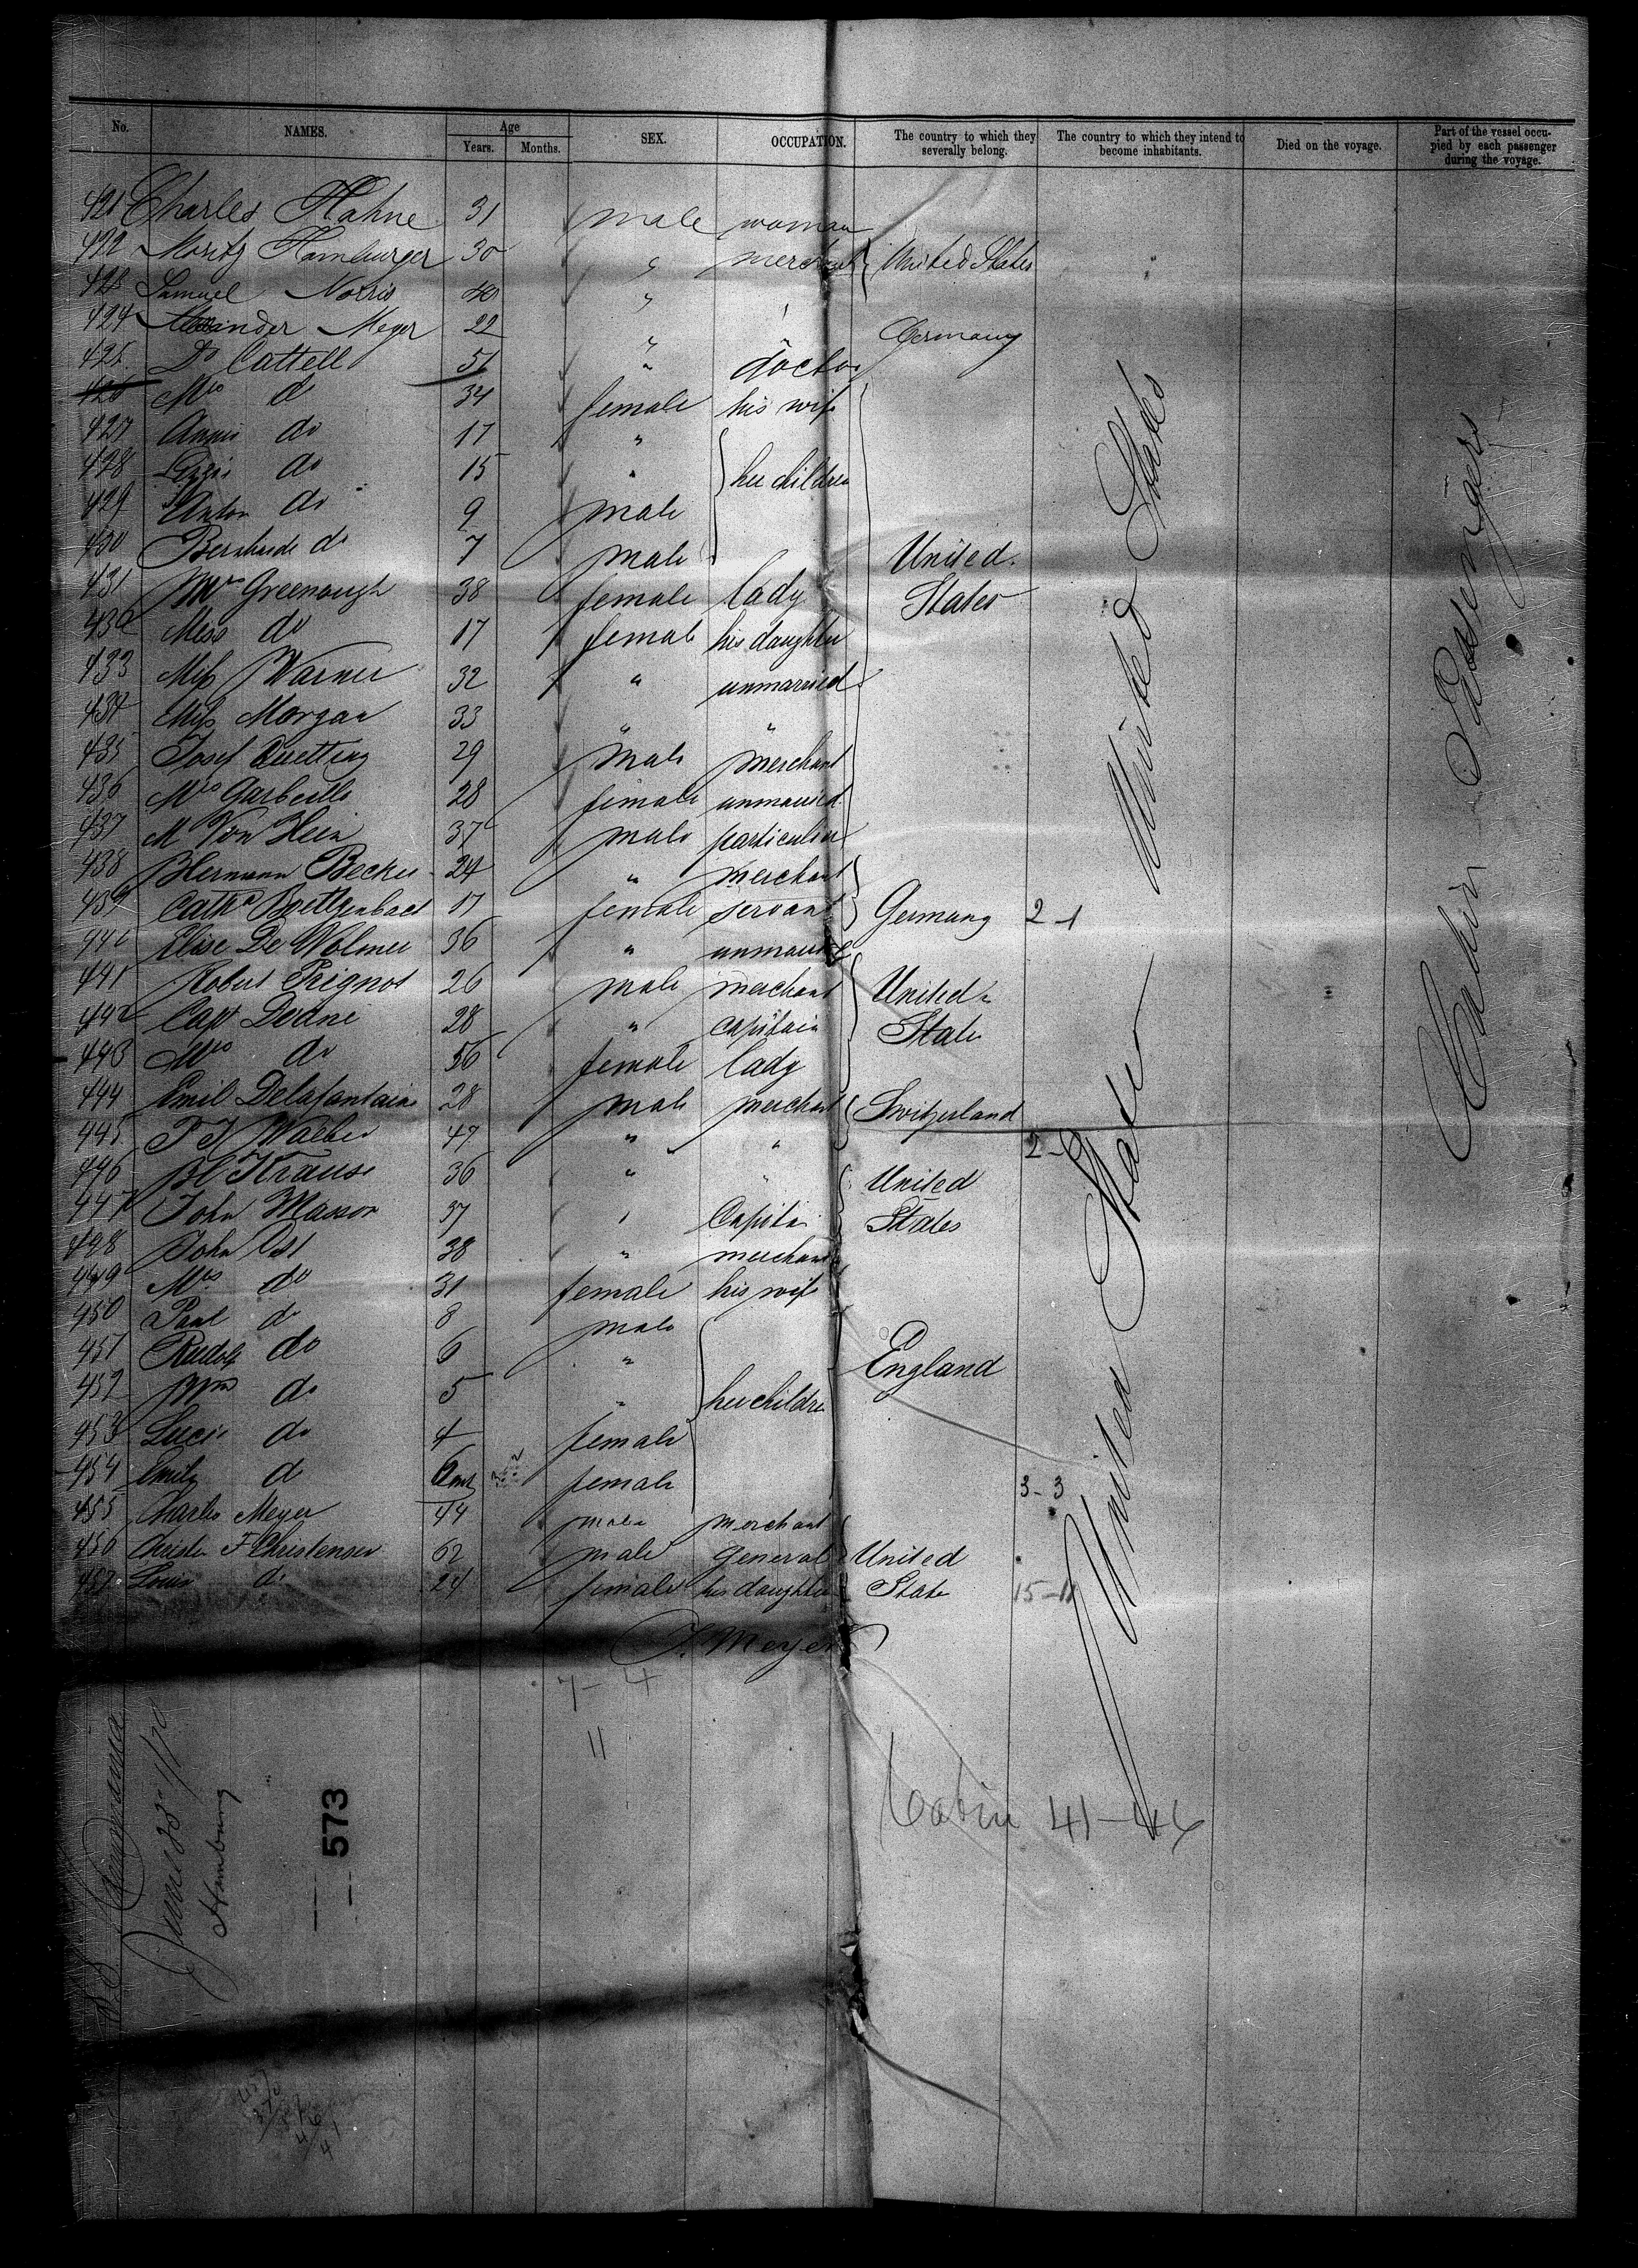 No. NAMES. Age Years. Months. SEX. OCCUPATION. The country to which they severally belong. The country to which they intend to become inhabitants. Died on the voyage. Part of the vessel occupied by each passenger during the voyage.
421 Charles Hahne 31 male woman
422 Moritz Hamburger 30 " merchant United States
423 Samuel Norris 40 "
424 Alexander Meyer 22 " " Germany
425 Dr Cattell 51 " doctor
426 Mrs do 34 female his wife
427 Annie do 17 "
428 do 15 " her children
429 Anton do 9 male
430 Bernhardt do 7 male United
431 Mrs Greenough 38 female lady States
432 Miss do 17 female his daughter
433 Miss Warner 32 " unmarried
434 Miss Morgan 33 " "
435 Josef 29 male merchant
436 Mrs Garbeille 28 female unmarried
437 M Von Hein 37 male particulier
438 Hermann Becker 24 " merchant
439 Cathe 17 female servant Germany 2-1
440 Elise De Wolmer 36 " unmarried
441 Robert Prignot 26 male merchant United
442 Capt Deane 28 " capitain State
443 Mrs do 56 female lady
444 Emil Delafontaine 28 male merchant Switzerland
445 47 " " 2-0
446 Krause 36 " United
447 John Masson 37 " Capitai States
448 John Ost 38 " merchant
449 Mrs do 31 female his wife
450 Paul do 8 male
451 Rudolf do 6 " England
452 Wm do 5 " her children
453 Lucie do 4 female
454 Emily d 6 mts female 3-3
455 Charles Meyer 44 male merchant
456 Christn F Christensen 62 male general United
457 Louis do 24 female his daughter State 15-11
United States
United State
Cabin Passengers
J. Meyer
7-4
11
Cabin 41-46
SS Cimbria
June
Hamburg
573